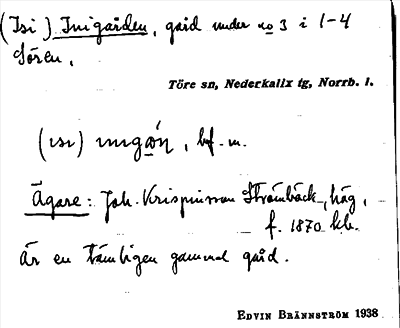 (Isi) Inigården, gård under no 3 i 1-4
Sören.
Töre sn, Nederkalix tg, Norrb. l.
(ɩsɩ) ɩnɩgǻn, bf. m.
Ägare: Joh. Krispinsson Strömbäck, häg,
f. 1870 kb.
Är en tämligen gammal gård.
EDVIN BRÄNNSTRÖM 1938